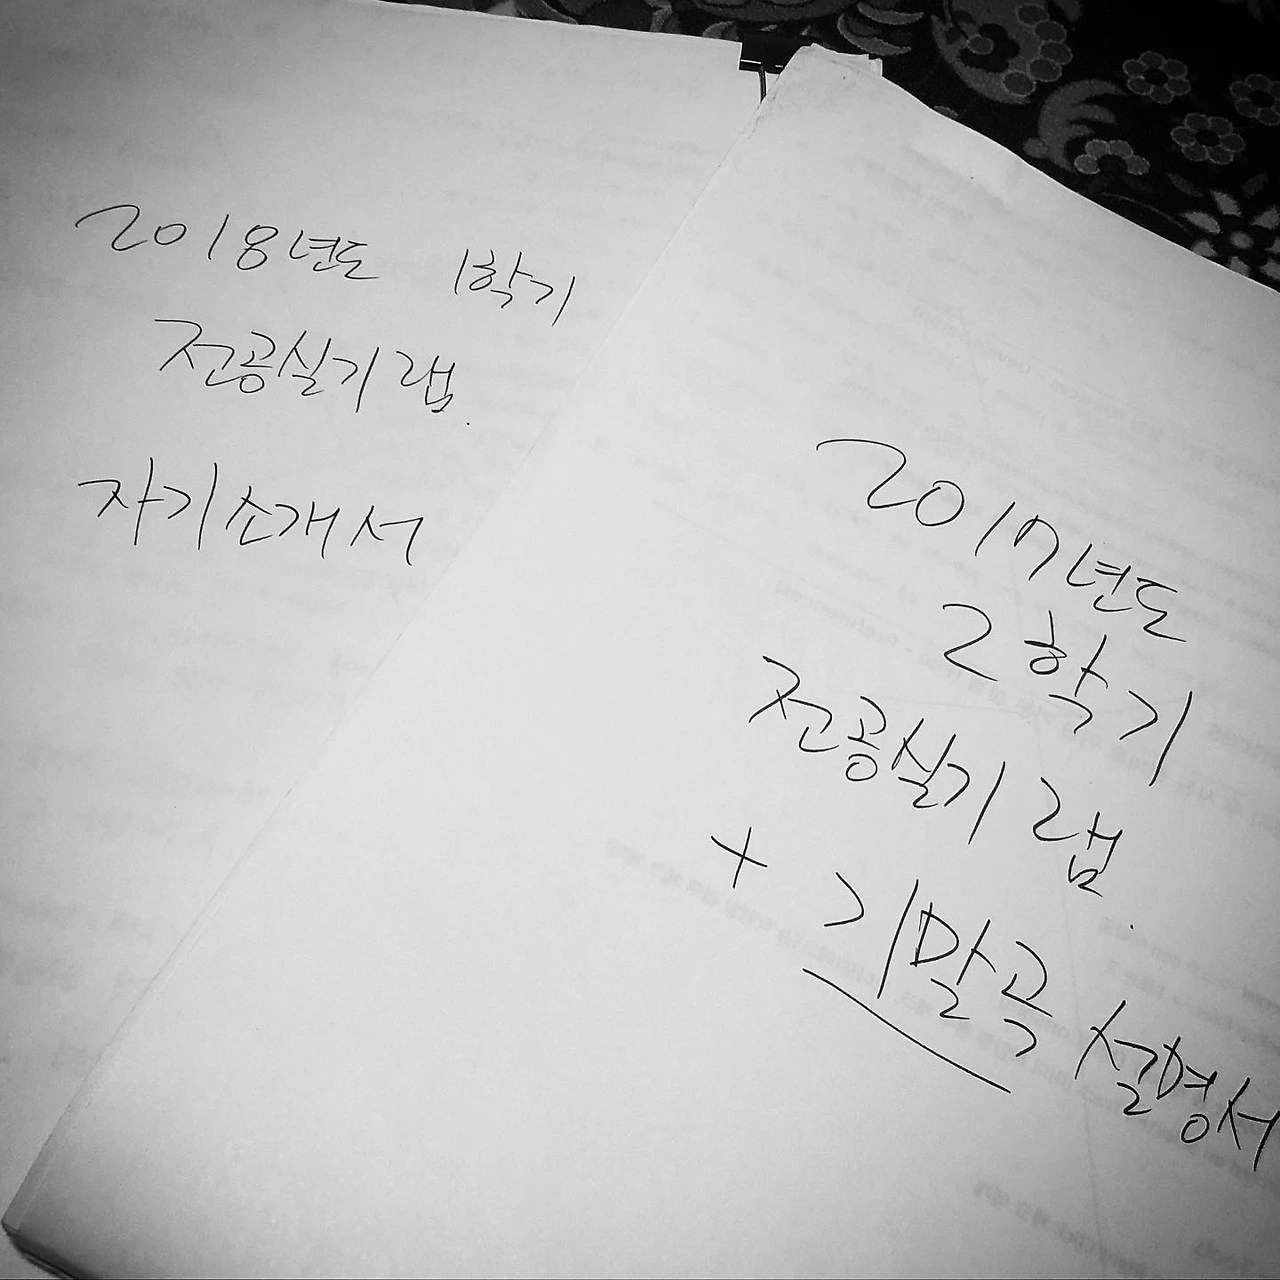 2018년도 1학기
전공실기 랩.
자기소개서
2017년도
2학기
전공실기 랩.
+ 기말곡 설명서